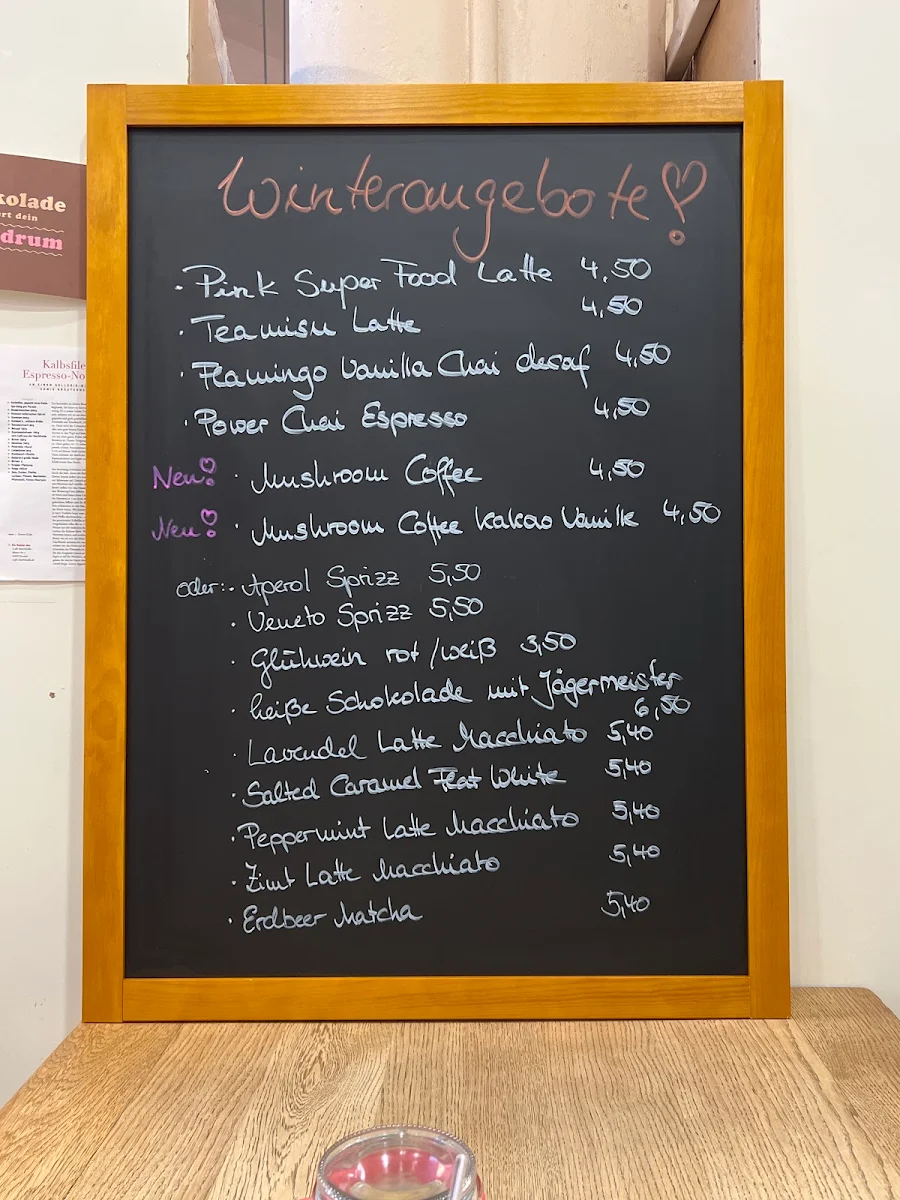 Winterangebote!
· Pink Super Food Latte 4,50
· Teamisu Latte 4,50
· Flamingo Vanilla Chai decaf 4,50
· Power Chai Espresso 4,50
Neu! Mushroom Coffee 4,50
Neu! · Mushroom Coffee Kakao Vanille 4,50
oder: · Aperol Sprizz 5,50
· Veneto Sprizz 5,50
· Glühwein rot/weiß 3,50
· heiße Schokolade mit Jägermeister
6,50
· Lavendel Latte Macchiato 5,40
· Salted Caramel Flat White 5,40
· Peppermint Latte Macchiato 5,40
· Zimt Latte Macchiato 5,40
· Erdbeer Matcha 5,40
kolade
rt dein
drum
Kalbsfile
Espresso-No